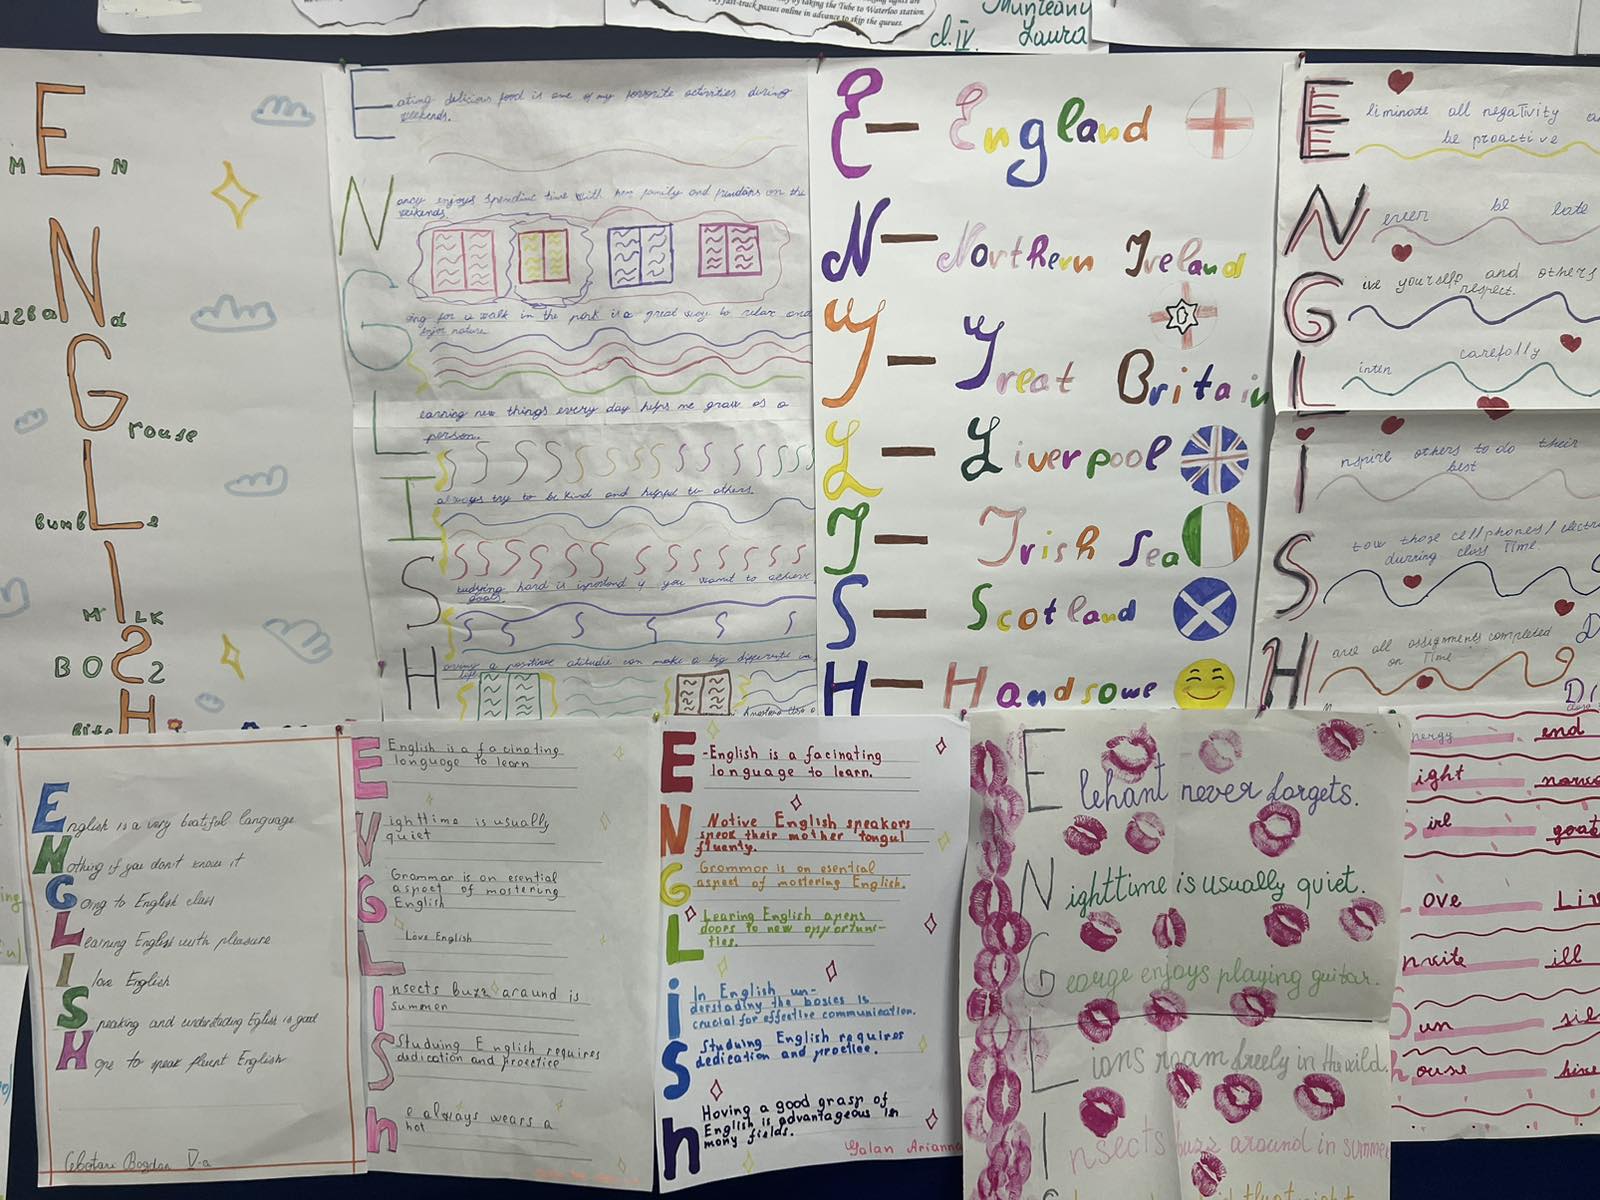 by taking the Tube to Waterloo station.
fast-track passes online in advance to skip the queues.
Munteanu
cl. IV. Laura
E
M N
N
d
G
rouse
L
BumbL e
I
M LK
S
BO S2
H
Eating delicious food is one of my favorite activities during
weekends.
Nancy enjoys spendinc time with her family and
on the
weekends
Going for a walk in the park is a great way to relax and
enjoy nature.
Learning new things every day helps me grow as a
person.
I
always try to be kind and
others.
Studying hard is
you
to achieve
goals.
Having a
can make a big
in
life
E — England
N — Northern Ireland
G — Great Britain
L — Liverpool
I — Irish Sea
S — Scotland
H — Handsome
Eliminate all negativity
be proactive
Never be late
Give yourself and others
respect.
Listen carefolly
Inspire others to do their
best
Stow those cellphones/
durring class Time.
Have all assignments completed
on Time
English is a very beatiful language
Nothing if you don't know it
Going to English class
Learning English with pleasure
I love English
Speaking and understanding Eglish is good
Hope to speak fluent English
Bogdan V-a
English is a facinating
language to learn
Nighttime is usually
quiet
Grammar is on esential
aspect of mostering
English
Love English
Insects buzz around is
summer
Studuing English requires
dedication and proctice
he always wears a
hot
E -English is a facinating
language to learn.
Notive English speakers
speak their mother tongul
fluenty.
Grammar is on esential
aspect of mostering English.
Learing English opens
doors to new opportuni-
ties.
In English un-
derstading the basies is
crucial for effective communication.
Studuing English requires
dedication and proctice.
Hoving a good grasp of
English is advantageous in
mony fields.
Galan Arianna
Elehant never forgets.
Nighttime is usually quiet.
George enjoys playing guitar.
Lions roam freely in the wild.
Insects buzz around in summer
nergy end
ight
irl goat
ove
nvite ill
Sun
house